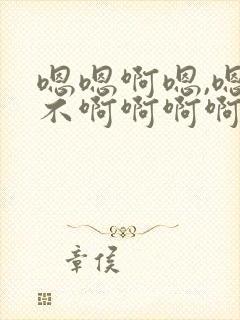 嗯嗯啊嗯,嗯
不啊啊啊啊
章侯